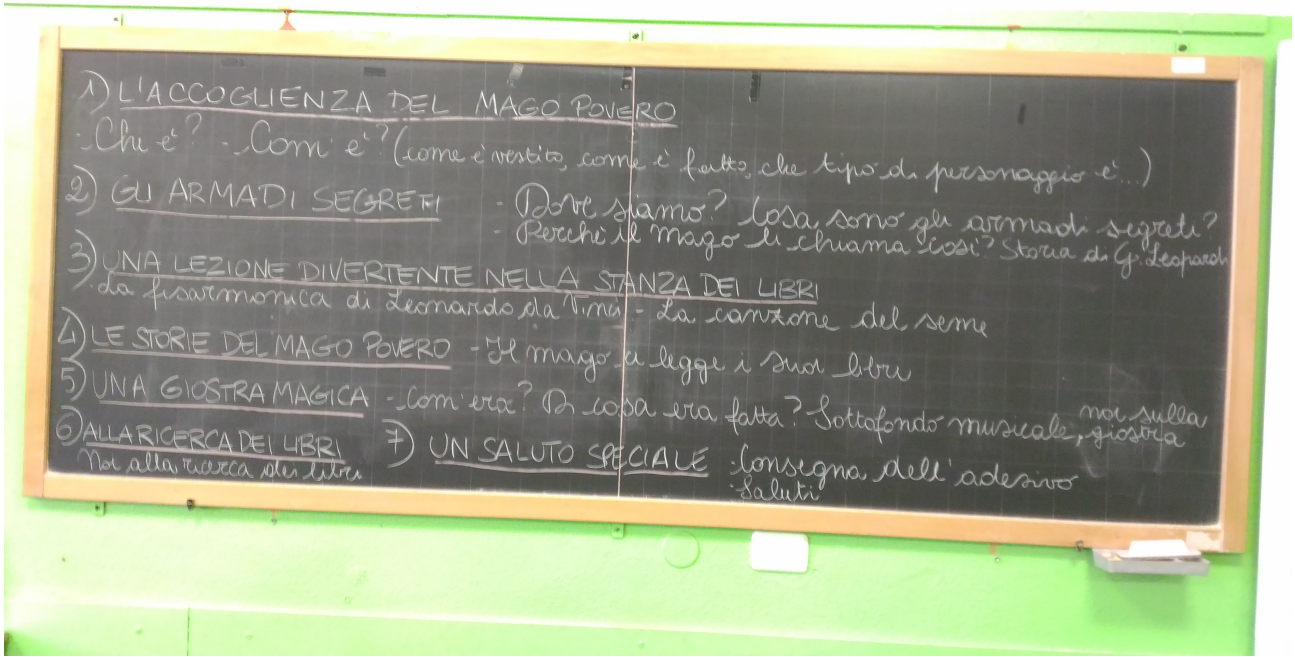 1) L'ACCOGLIENZA DEL MAGO POVERO
- Chi e'? - Com' e'? (come è vestito, come è fatto, che tipo di personaggio è...)
2) GLI ARMADI SEGRETI - Dove siamo? Cosa sono gli armadi segreti?
- Perchè il mago li chiama così? Storia di G. Leopardi
3) UNA LEZIONE DIVERTENTE NELLA STANZA DEI LIBRI
La fisarmonica di Leonardo da Vinci - La canzone del seme
4) LE STORIE DEL MAGO POVERO - Il mago ci legge i suoi libri
5) UNA GIOSTRA MAGICA - Com'era? Di cosa era fatta? Sottofondo musicale, noi sulla giostra
6) ALLA RICERCA DEI LIBRI
Noi alla ricerca dei libri
7) UN SALUTO SPECIALE Consegna dell'adesivo
Saluti